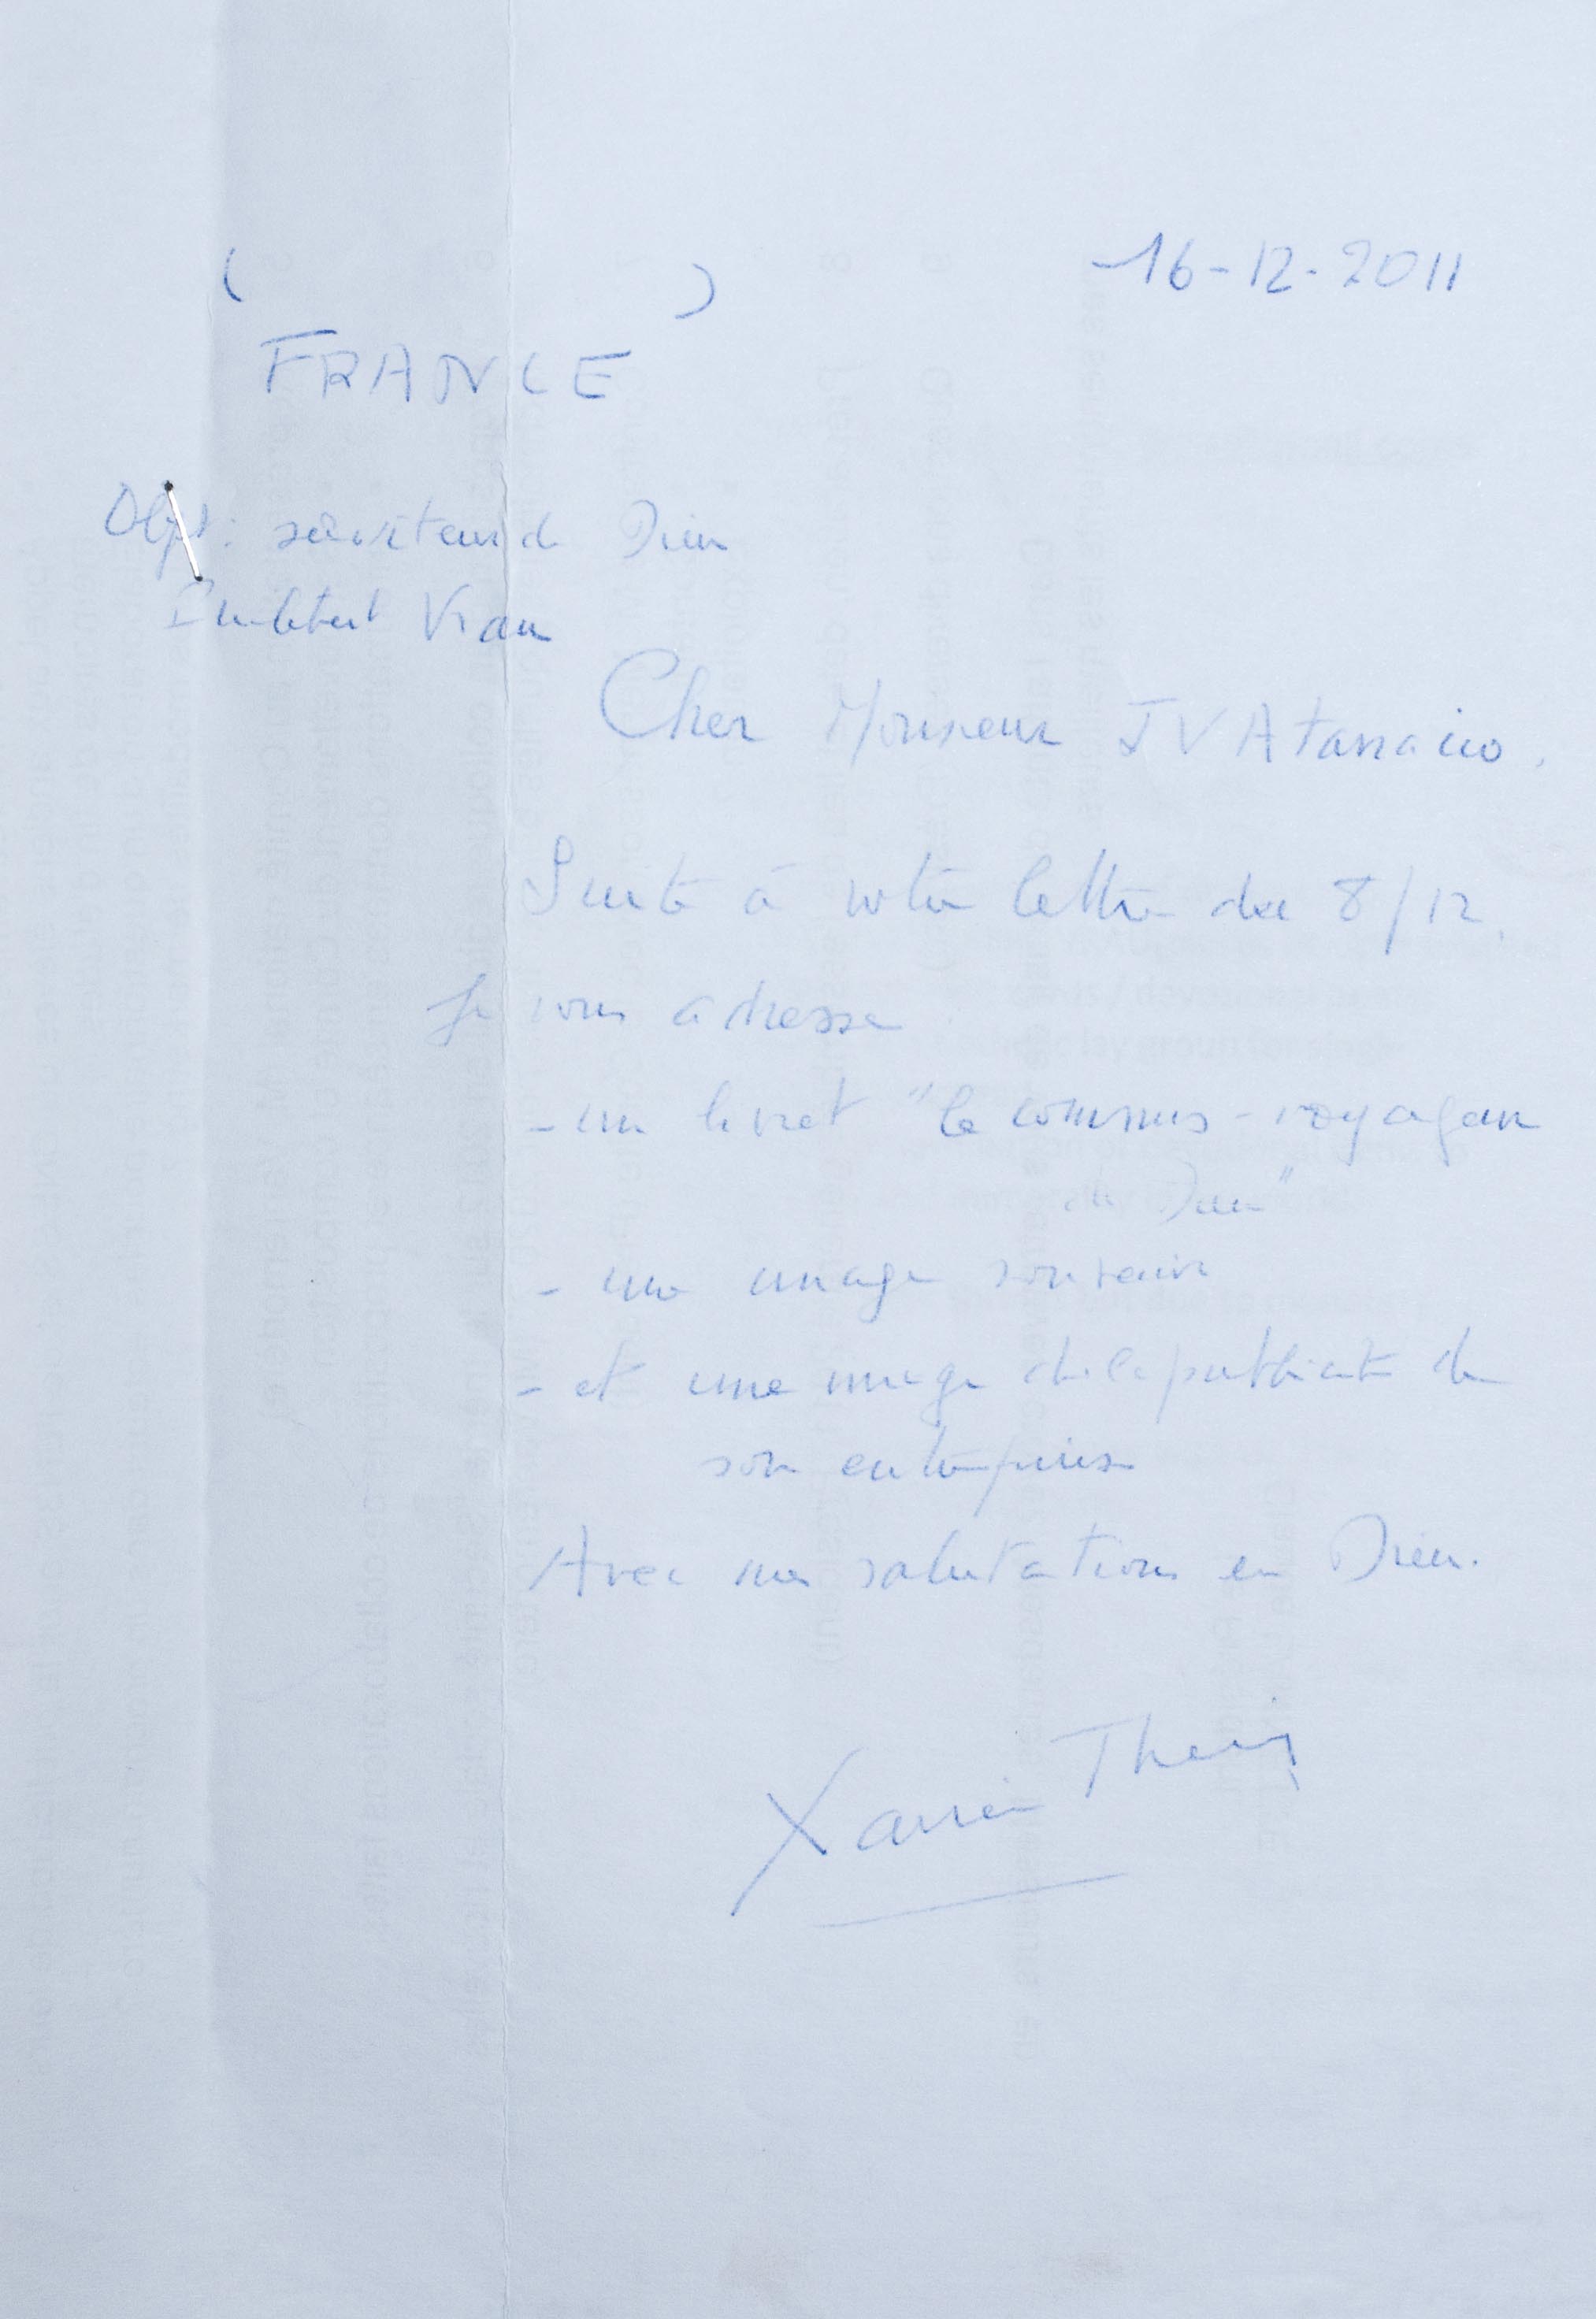 ( ) 16-12-2011
FRANCE
Objet : serviteur de Dieu
Philibert Vrau
Cher Monsieur J V A
Suite à votre lettre du 8/12,
Je vous adresse
- un livret "le commis-voyageur
de Dieu"
- une image souvenir
- et une image de la publicité de
son entreprise
Avec mes salutations en Dieu.
Xavier